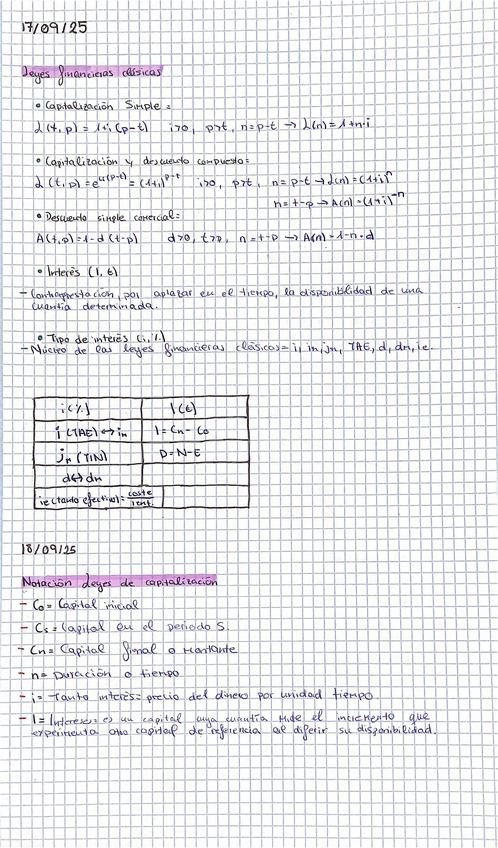 17/09/25
Leyes financieras clásicas
• Capitalización Simple =
L(t,p) = 1+i(p-t) i>0, p>t, n=p-t → L(n)=1+n·i
• Capitalización y descuento compuesto=
L(t,p)=e^u(p-t) = (1+i)^p-t i>0, p>t, n=p-t → L(n)=(1+i)^n
n=t-p → A(n)=(1+i)^-n
• Descuento simple comercial=
A(t,p)=1-d(t-p) d>0, t>p, n=t-p → A(n)=1-n·d
• Interés (I, €)
- Contraprestación, por aplazar en el tiempo, la disponibilidad de una
cuantía determinada.
• Tipo de interés (i, %)
- Núcleo de las leyes financieras clásicas= i, im, jm, TAE, d, dm, ie.
i(%) I(€)
i (TAE) ↔ im I = Cn - Co
jm (TIN) D=N-E
d↔dm
ie (tanto efectivo)= coste/rent.
18/09/25
Notación Leyes de capitalización
- Co= Capital inicial
- Cs= Capital en el periodo S.
- Cn= Capital final o Montante
- n= Duración o tiempo
- i= Tanto interés= precio del dinero por unidad tiempo
- I= Intereses= es un capital cuya cuantía mide el incremento que
experimenta otro capital de referencia al diferir su disponibilidad.